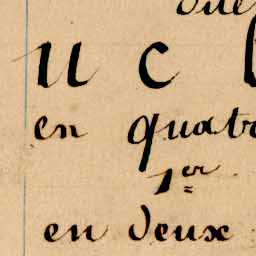 u c
en quatr
1er
en deux